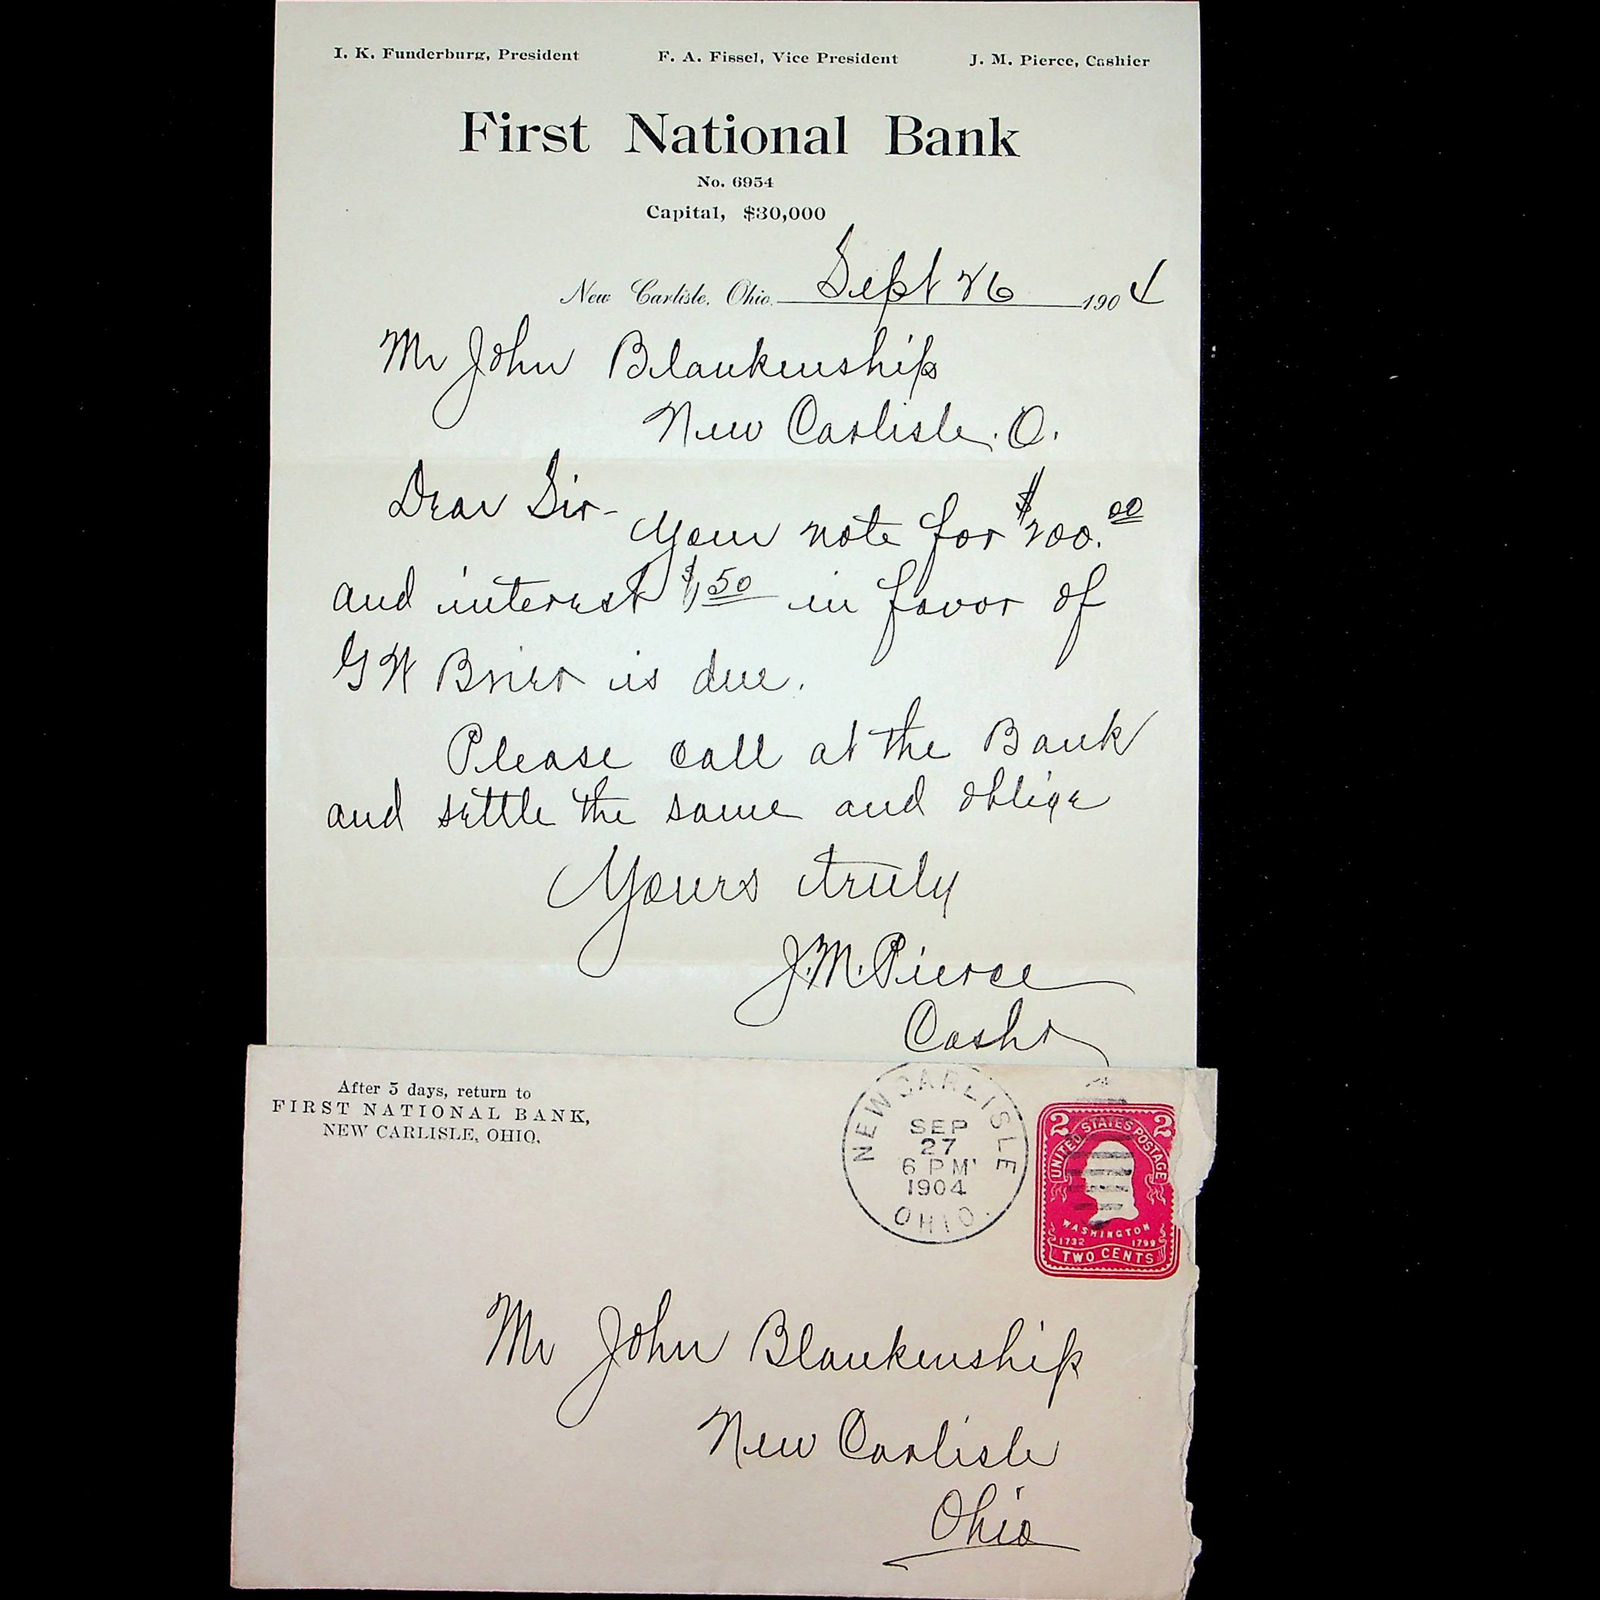 I. K. Funderburg, President F. A. Fissel, Vice President J. M. Pierce, Cashier
First National Bank
No. 6954
Capital, $30,000
New Carlisle, Ohio, Sept 26 1904
Mr John Blankenship
New Carlisle. O.
Dear Sir-
Your note for $200.00
and interest $1.50 in favor of
G W Brier is due.
Please call at the Bank
and settle the same and oblige
Yours truly
J. M. Pierce
Cashr
After 5 days, return to
FIRST NATIONAL BANK,
NEW CARLISLE, OHIO.
NEW CARLISLE
SEP
27
6 PM
1904
OHIO.
2 2
UNITED STATES POSTAGE
WASHINGTON
1732 1799
TWO CENTS
Mr John Blankenship
New Carlisle
Ohio